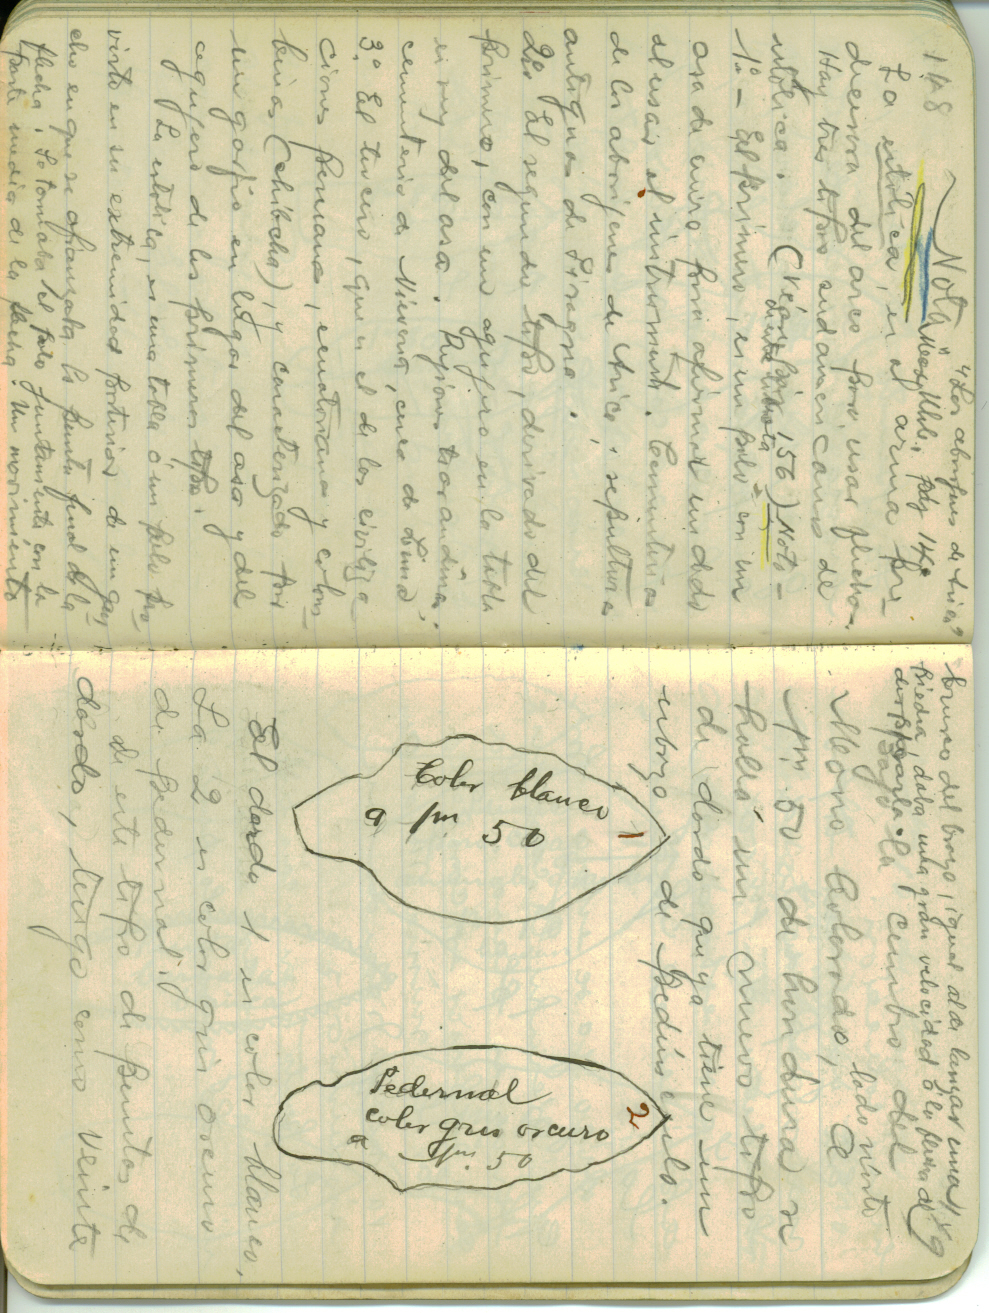 148
Nota
"Los aborígenes de Arica"
Max Uhle. pág 14
La estólica, es el arma pre-
decesora del arco para usar flechas.
Hay tres tipos sudamericanos de
estólica. (Véase pág. 156) Nota -
de esta libreta
1º - El primero, es un palo = con un
asa de cuero para afirmar un dedo
al usar el instrumento. Cementerios
de los aborígenes de Arica i sepulturas
antiguas de Pisagua.
2do El segundo tipo, derivado del
primero, con un agujero en la tabla
en vez del asa. Rejiones trasandinas.
cementerio de Nievería, cerca de Lima
3º El tercero, que es el de las civiliza-
ciones peruanas, ecuatorianas y colom-
bianas (chibcha), y caracterizado por
un garfio en lugar del asa y del
agujero de los primeros tipos.
La estólica, es una tabla ó un palo pro-
visto en su extremidad posterior de un gan-
cho en que se afianzaba la punta final de la
flecha. Se tomaba el palo juntamente con la
parte media de la flecha. Un movimiento
149
brusco del brazo, igual al de lanzar una
piedra, daba una gran velocidad á la flecha al
dispararla.
Bajo la cumbre del
Morro Colorado, lado norte
a pm 50 de hondura se
halló un nuevo tipo
de dardo que ya tiene un
esbozo de pedúnculo.
Color blanco
a pm 50
1
Pedernal
color gris oscuro
a pm. 50
2
El dardo 1 es color blanco,
La 2 es color gris oscuro
de pedernal.
de este tipo de puntas de
dardo, tengo como veinte